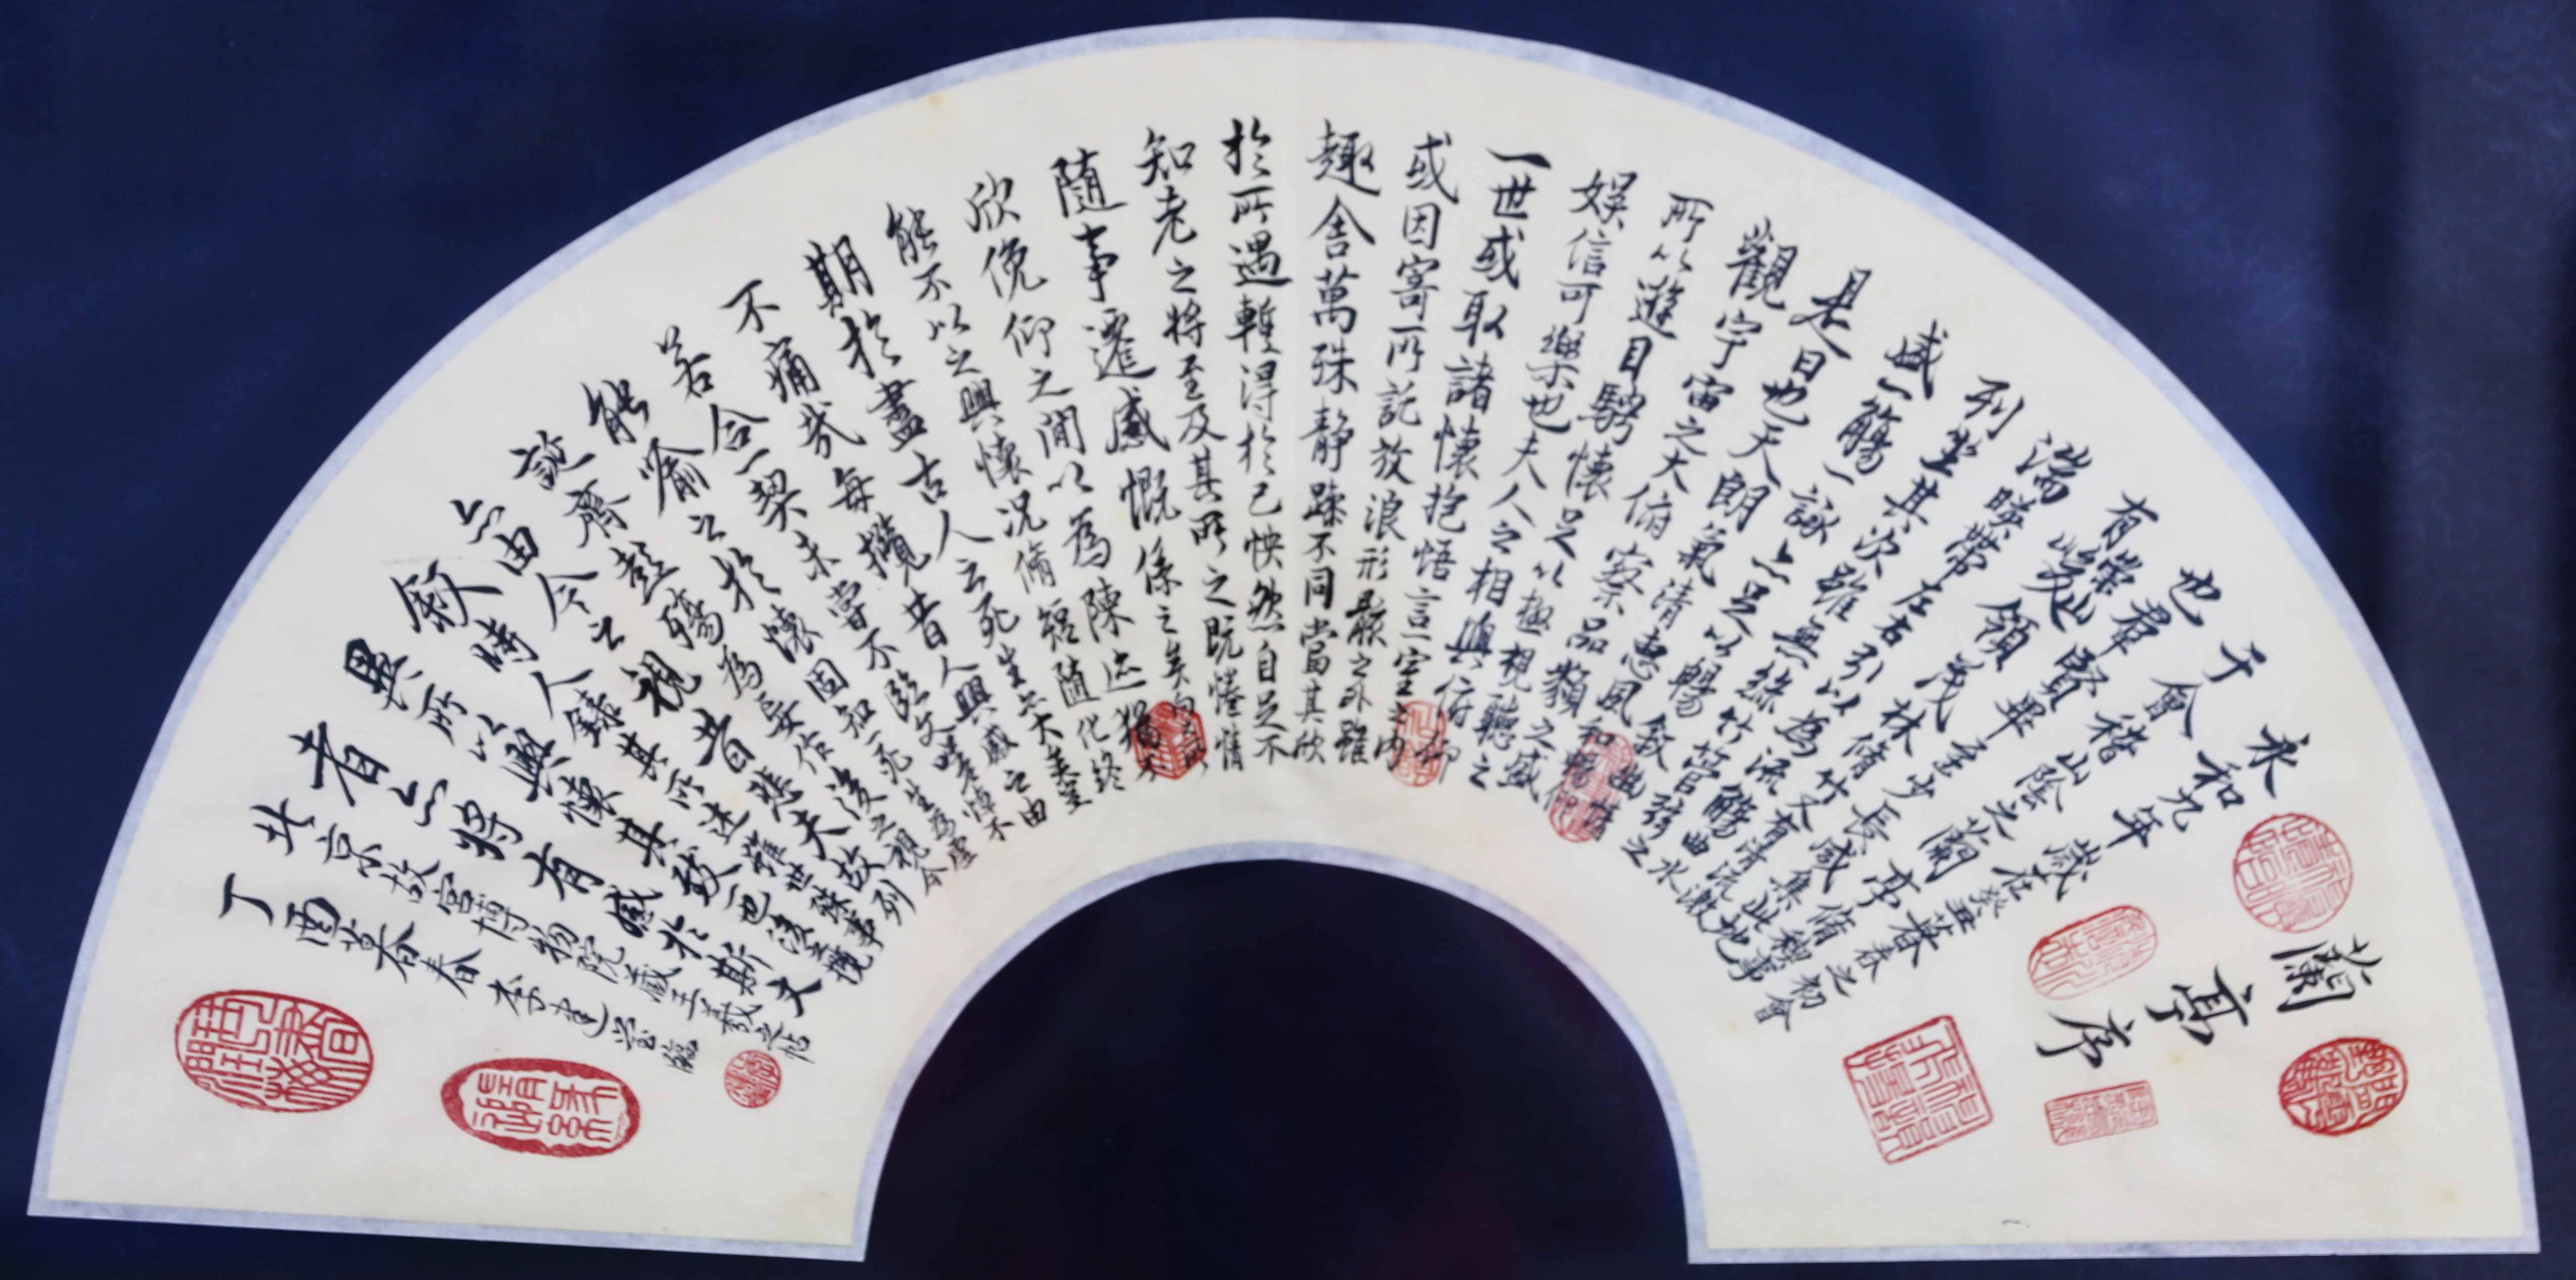 蘭亭序
永和九年歲在癸丑暮春之初會
于會稽山陰之蘭亭脩稧事
也群賢畢至少長咸集此地
有崇山峻領茂林脩竹又有清流激
湍暎帶左右引以為流觴曲水
列坐其次雖無絲竹管弦之
盛一觴一詠亦足以暢敘幽情
是日也天朗氣清惠風和暢仰
觀宇宙之大俯察品類之盛
所以遊目騁懷足以極視聽之
娛信可樂也夫人之相與俯仰
一世或取諸懷抱悟言一室之內
或因寄所託放浪形骸之外雖
趣舍萬殊靜躁不同當其欣
於所遇暫得於己怏然自足不
知老之將至及其所之既惓情
隨事遷感慨係之矣向之所
欣俛仰之間以為陳迹猶不
能不以之興懷況脩短隨化終
期於盡古人云死生亦大矣豈
不痛哉每攬昔人興感之由
若合一契未嘗不臨文嗟悼不
能喻之於懷固知一死生為虛
誕齊彭殤為妄作後之視今
亦由今之視昔悲夫故列
敘時人錄其所述雖世殊事
異所以興懷其致一也後之攬
者亦將有感於斯文
北京故宮博物院藏王羲之帖
丁酉暮春李建臨